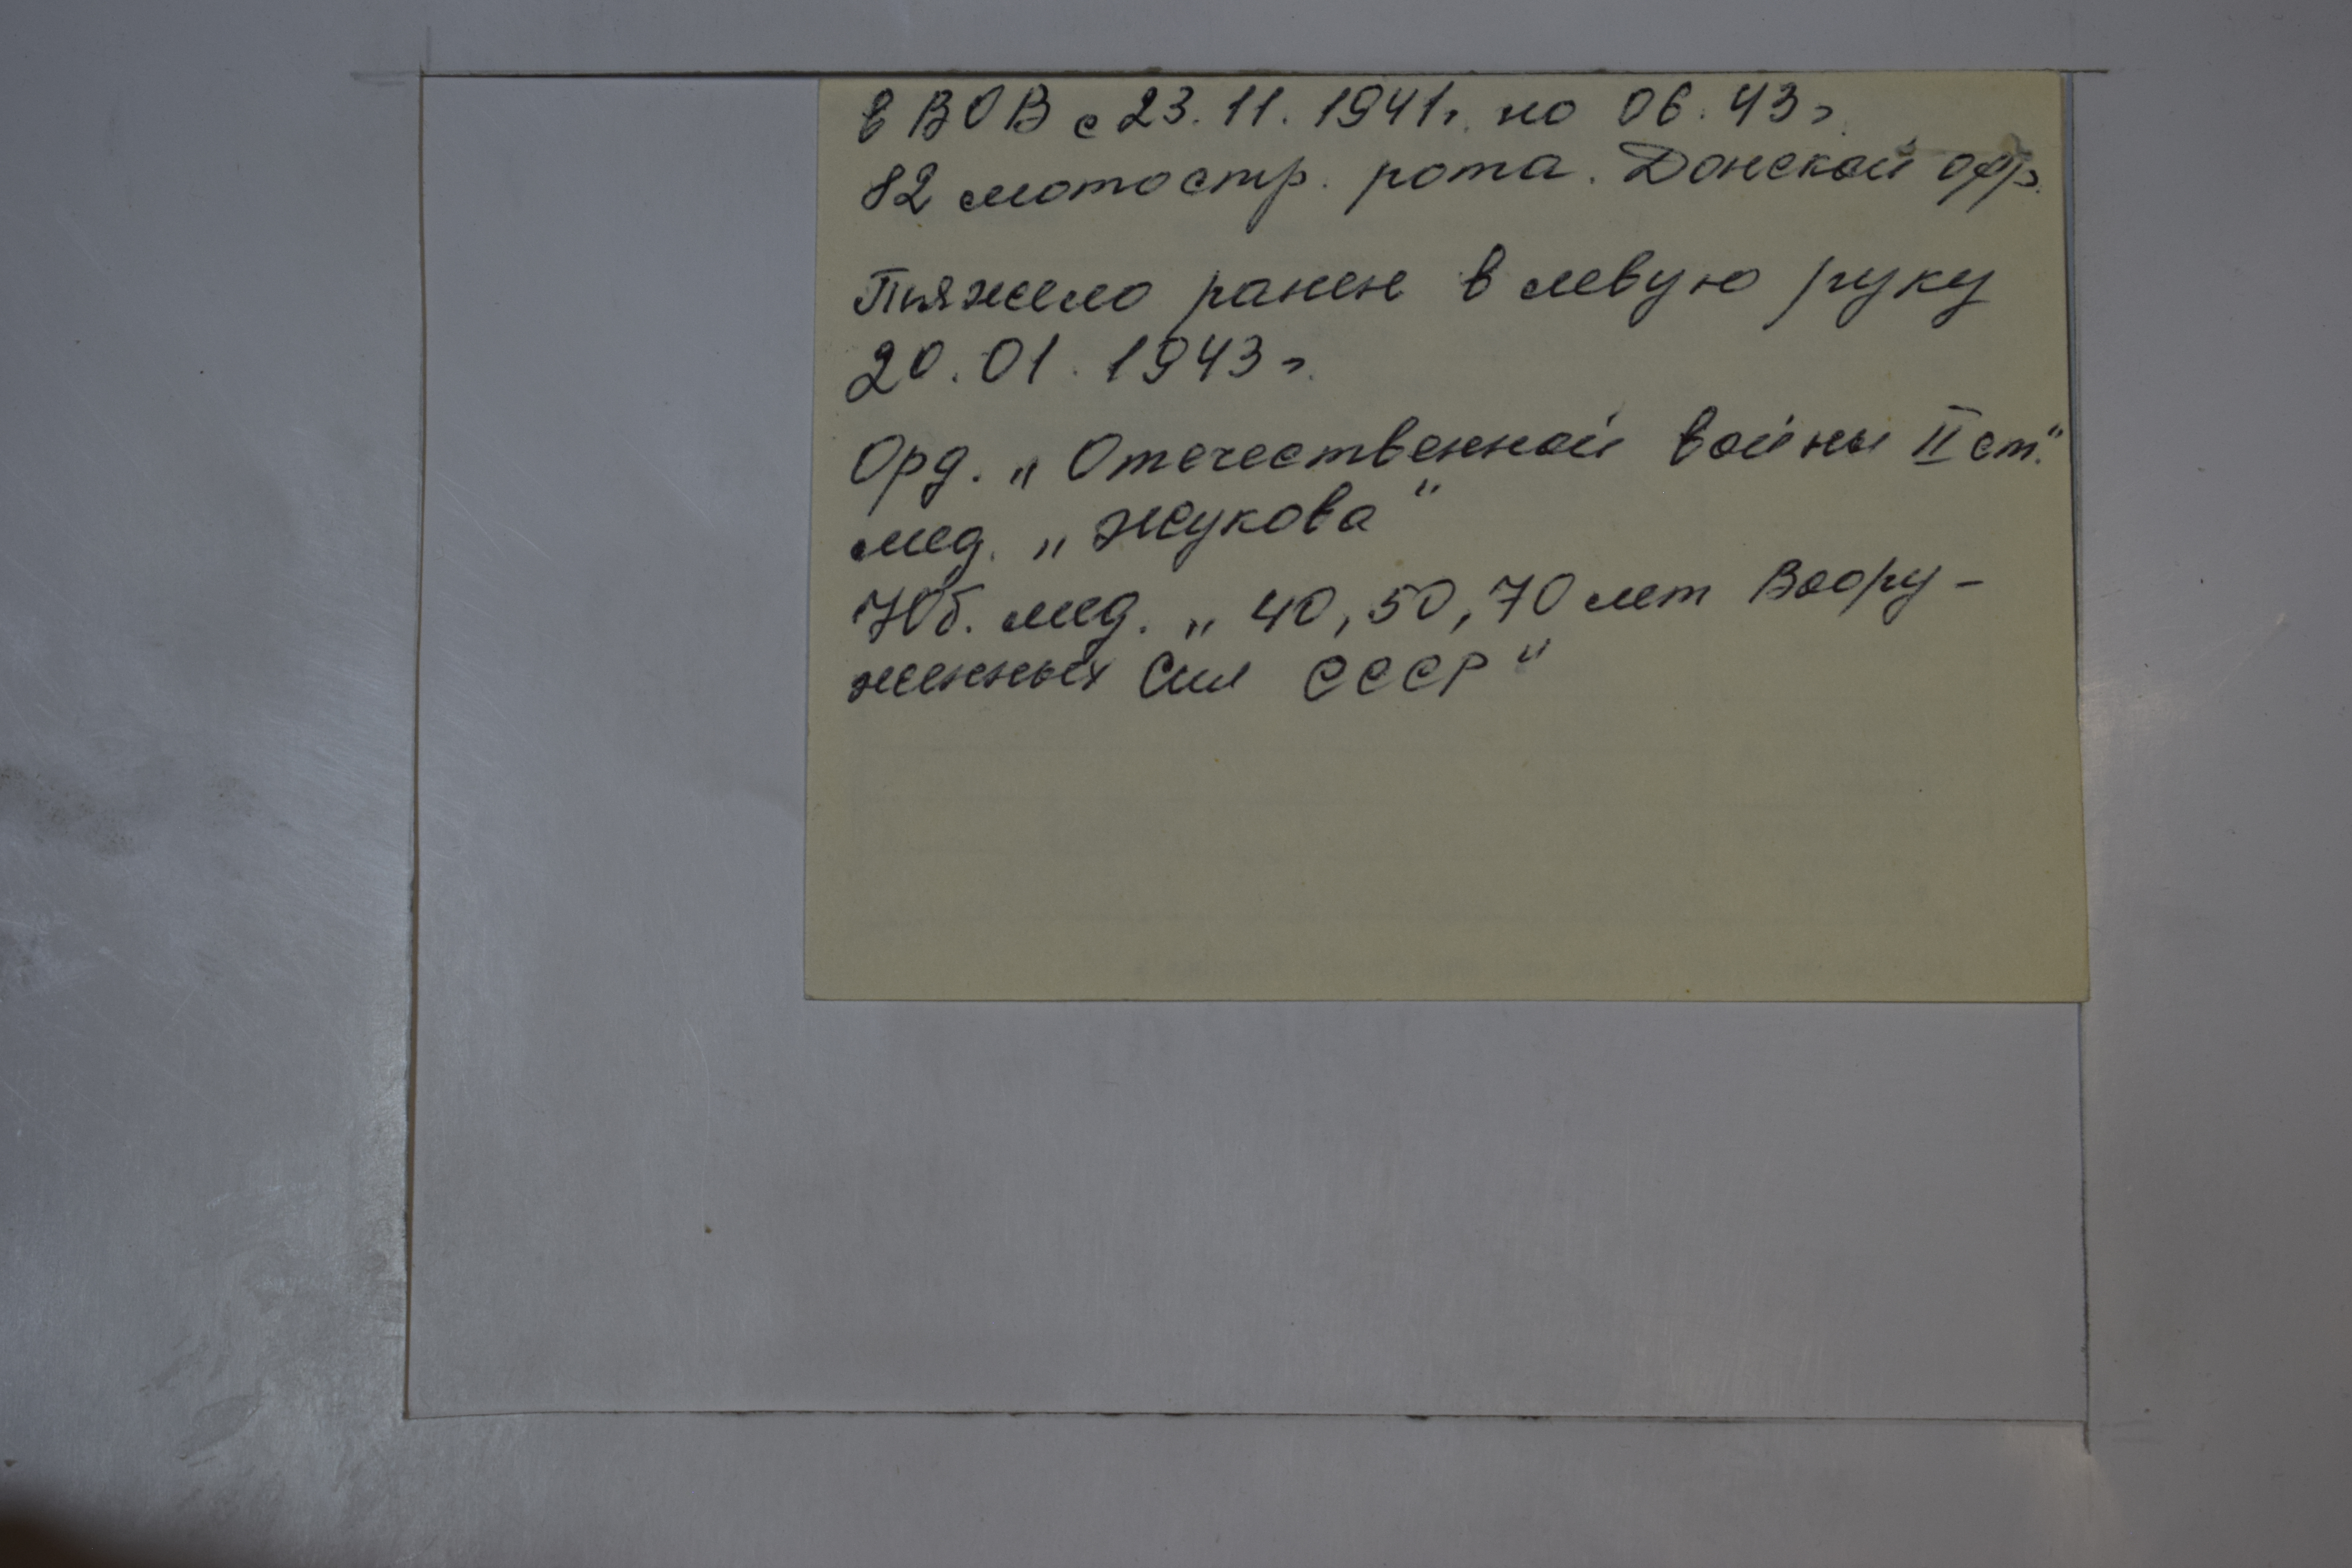 в ВОВ с 23.11.1941г. по 06.43г.
82 мотостр. рота. Донской фр.
Тяжело ранен в левую руку
20.01.1943г.
Орд. „Отечественной войны II ст."
мед. „Жукова"
Юб. мед. „40, 50, 70 лет Воору-
женных Сил СССР"